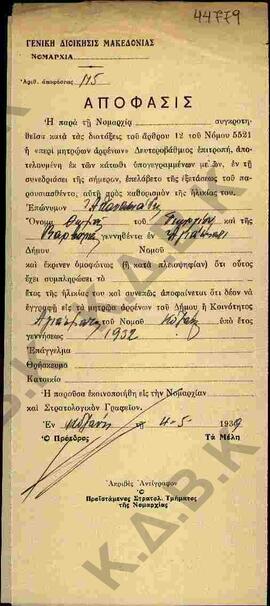 44779
ΓΕΝΙΚΗ ΔΙΟΙΚΗΣΙΣ ΜΑΚΕΔΟΝΙΑΣ
ΝΟΜΑΡΧΙΑ
Αριθ. ἀποφάσεως 115
ΑΠΟΦΑΣΙΣ
Ἡ παρὰ τῇ Νομαρχίᾳ συγκροτη-
θεῖσα κατὰ τὰς διατάξεις τοῦ ἄρθρου 12 τοῦ Νόμου 5521
ἡ «περὶ μητρώων ἀρρένων» Δευτεροβάθμιος ἐπιτροπή, ἀπο-
τελουμένη ἐκ τῶν κάτωθι ὑπογεγραμμένων μελῶν, ἐν τῇ
συνεδριάσει τῆς σήμερον, ἐπελάβετο τῆς ἐξετάσεως τοῦ πα-
ρουσιασθέντος αὐτῇ πρὸς καθορισμὸν τῆς ἡλικίας του.
Ἐπώνυμον
Ὄνομα Θωμᾶ τοῦ Γεωργίου καὶ τῆς
γεννηθέντα ἐν
Δήμου Νομοῦ
καὶ ἔκρινεν ὁμοφώνως (ἢ κατὰ πλειοψηφίαν) ὅτι οὗτος
ἔχει συμπληρώσει τὸ
ἔτος τῆς ἡλικίας του καὶ συνεπῶς ἀποφαίνεται ὅτι δέον νὰ
ἐγγραφῇ εἰς τὰ μητρῶα ἀρρένων τοῦ Δήμου ἢ Κοινότητος
τοῦ Νομοῦ Κοζάνης ὑπὸ ἔτος
γεννήσεως 1932
Ἐπάγγελμα
Θρήσκευμα
Κατοικία
Ἡ παροῦσα ἐκοινοποιήθη εἰς τὴν Νομαρχίαν
καὶ Στρατολογικὸν Γραφεῖον.
Ἐν Κοζάνῃ τῇ 4-5- 1939
Ὁ Πρόεδρος Τὰ Μέλη
Ἀκριβὲς Ἀντίγραφον
Ὁ
Προϊστάμενος Στρατολ. Τμήματος
τῆς Νομαρχίας
Κ.Δ.Β.Κ